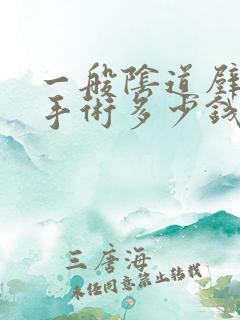 一般陰道壁
手術多少錢
三唐海
未経同意禁止转载